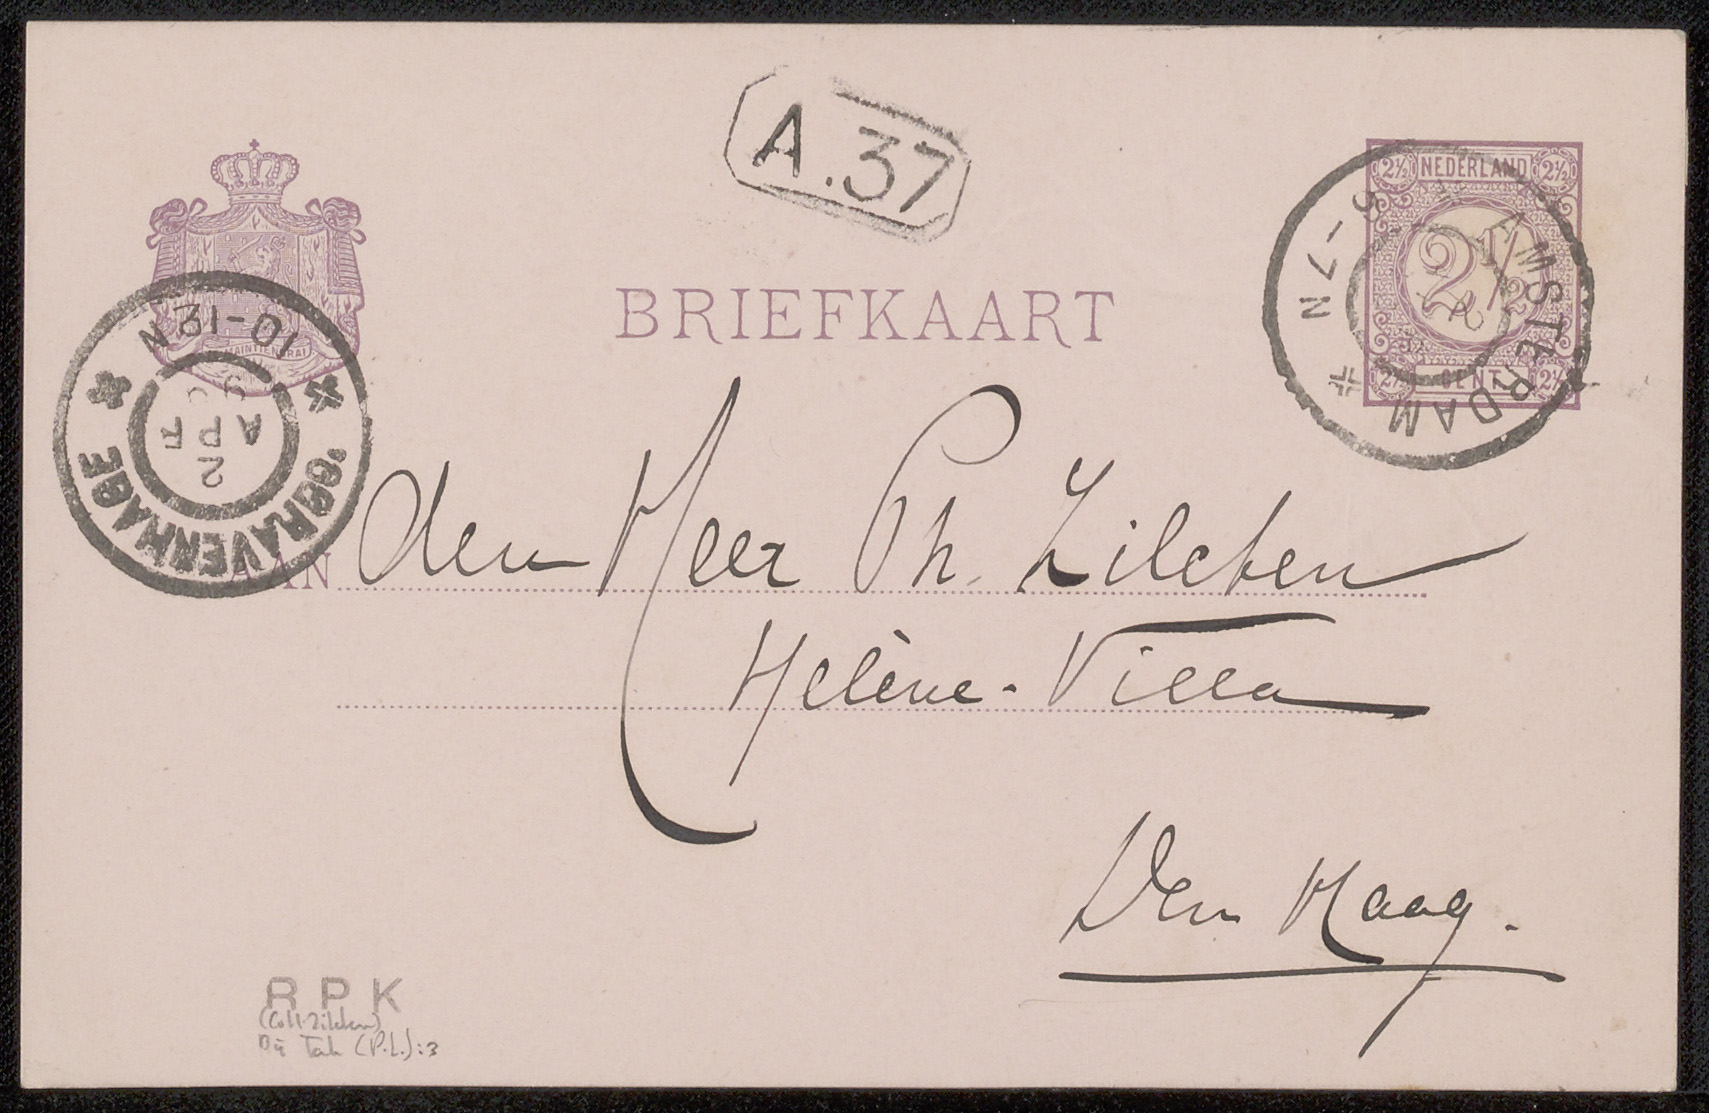 A.37
2½ NEDERLAND 2½
2½
2½ CENT 2½
AMSTERDAM
5-7N
MAINTIENDRAI
BRIEFKAART
'SGRAVENHAGE
10-12N
2 APR
AAN den Heer Ph. Zilcken
Helène-Villa
Den Haag.
R P K
(Coll. Zilcken)
Bij Tak (P.L.):3